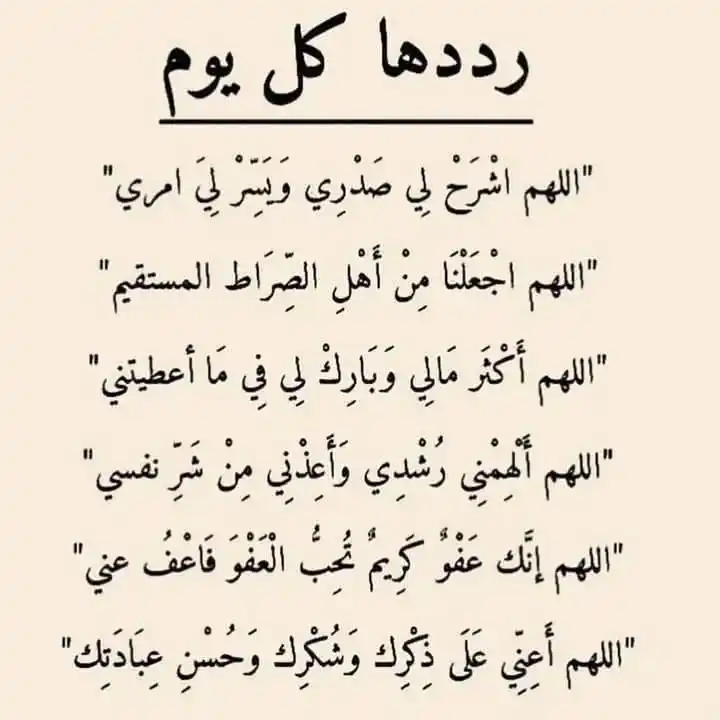 رددها كل يوم
"اللهم اشْرَحْ لِي صَدْرِي وَيَسِّرْ لِيَ امري"
"اللهم اجْعَلْنَا مِنْ أَهْلِ الصِّرَاط المستقيم"
"اللهم أَكْثَر مَالِي وَبَارِكْ لِي فِي مَا أعطيتني"
"اللهم أَلْهِمْنِي رُشْدِي وَأَعِذْنِي مِنْ شَرِّ نفسي"
"اللهم إنَّك عَفْوٌ كَرِيمٌ تُحِبُّ الْعَفْوَ فَاعْفُ عني"
"اللهم أَعِنِّي عَلَى ذِكْرِك وَشُكْرِك وَحُسْنِ عِبَادَتِك"